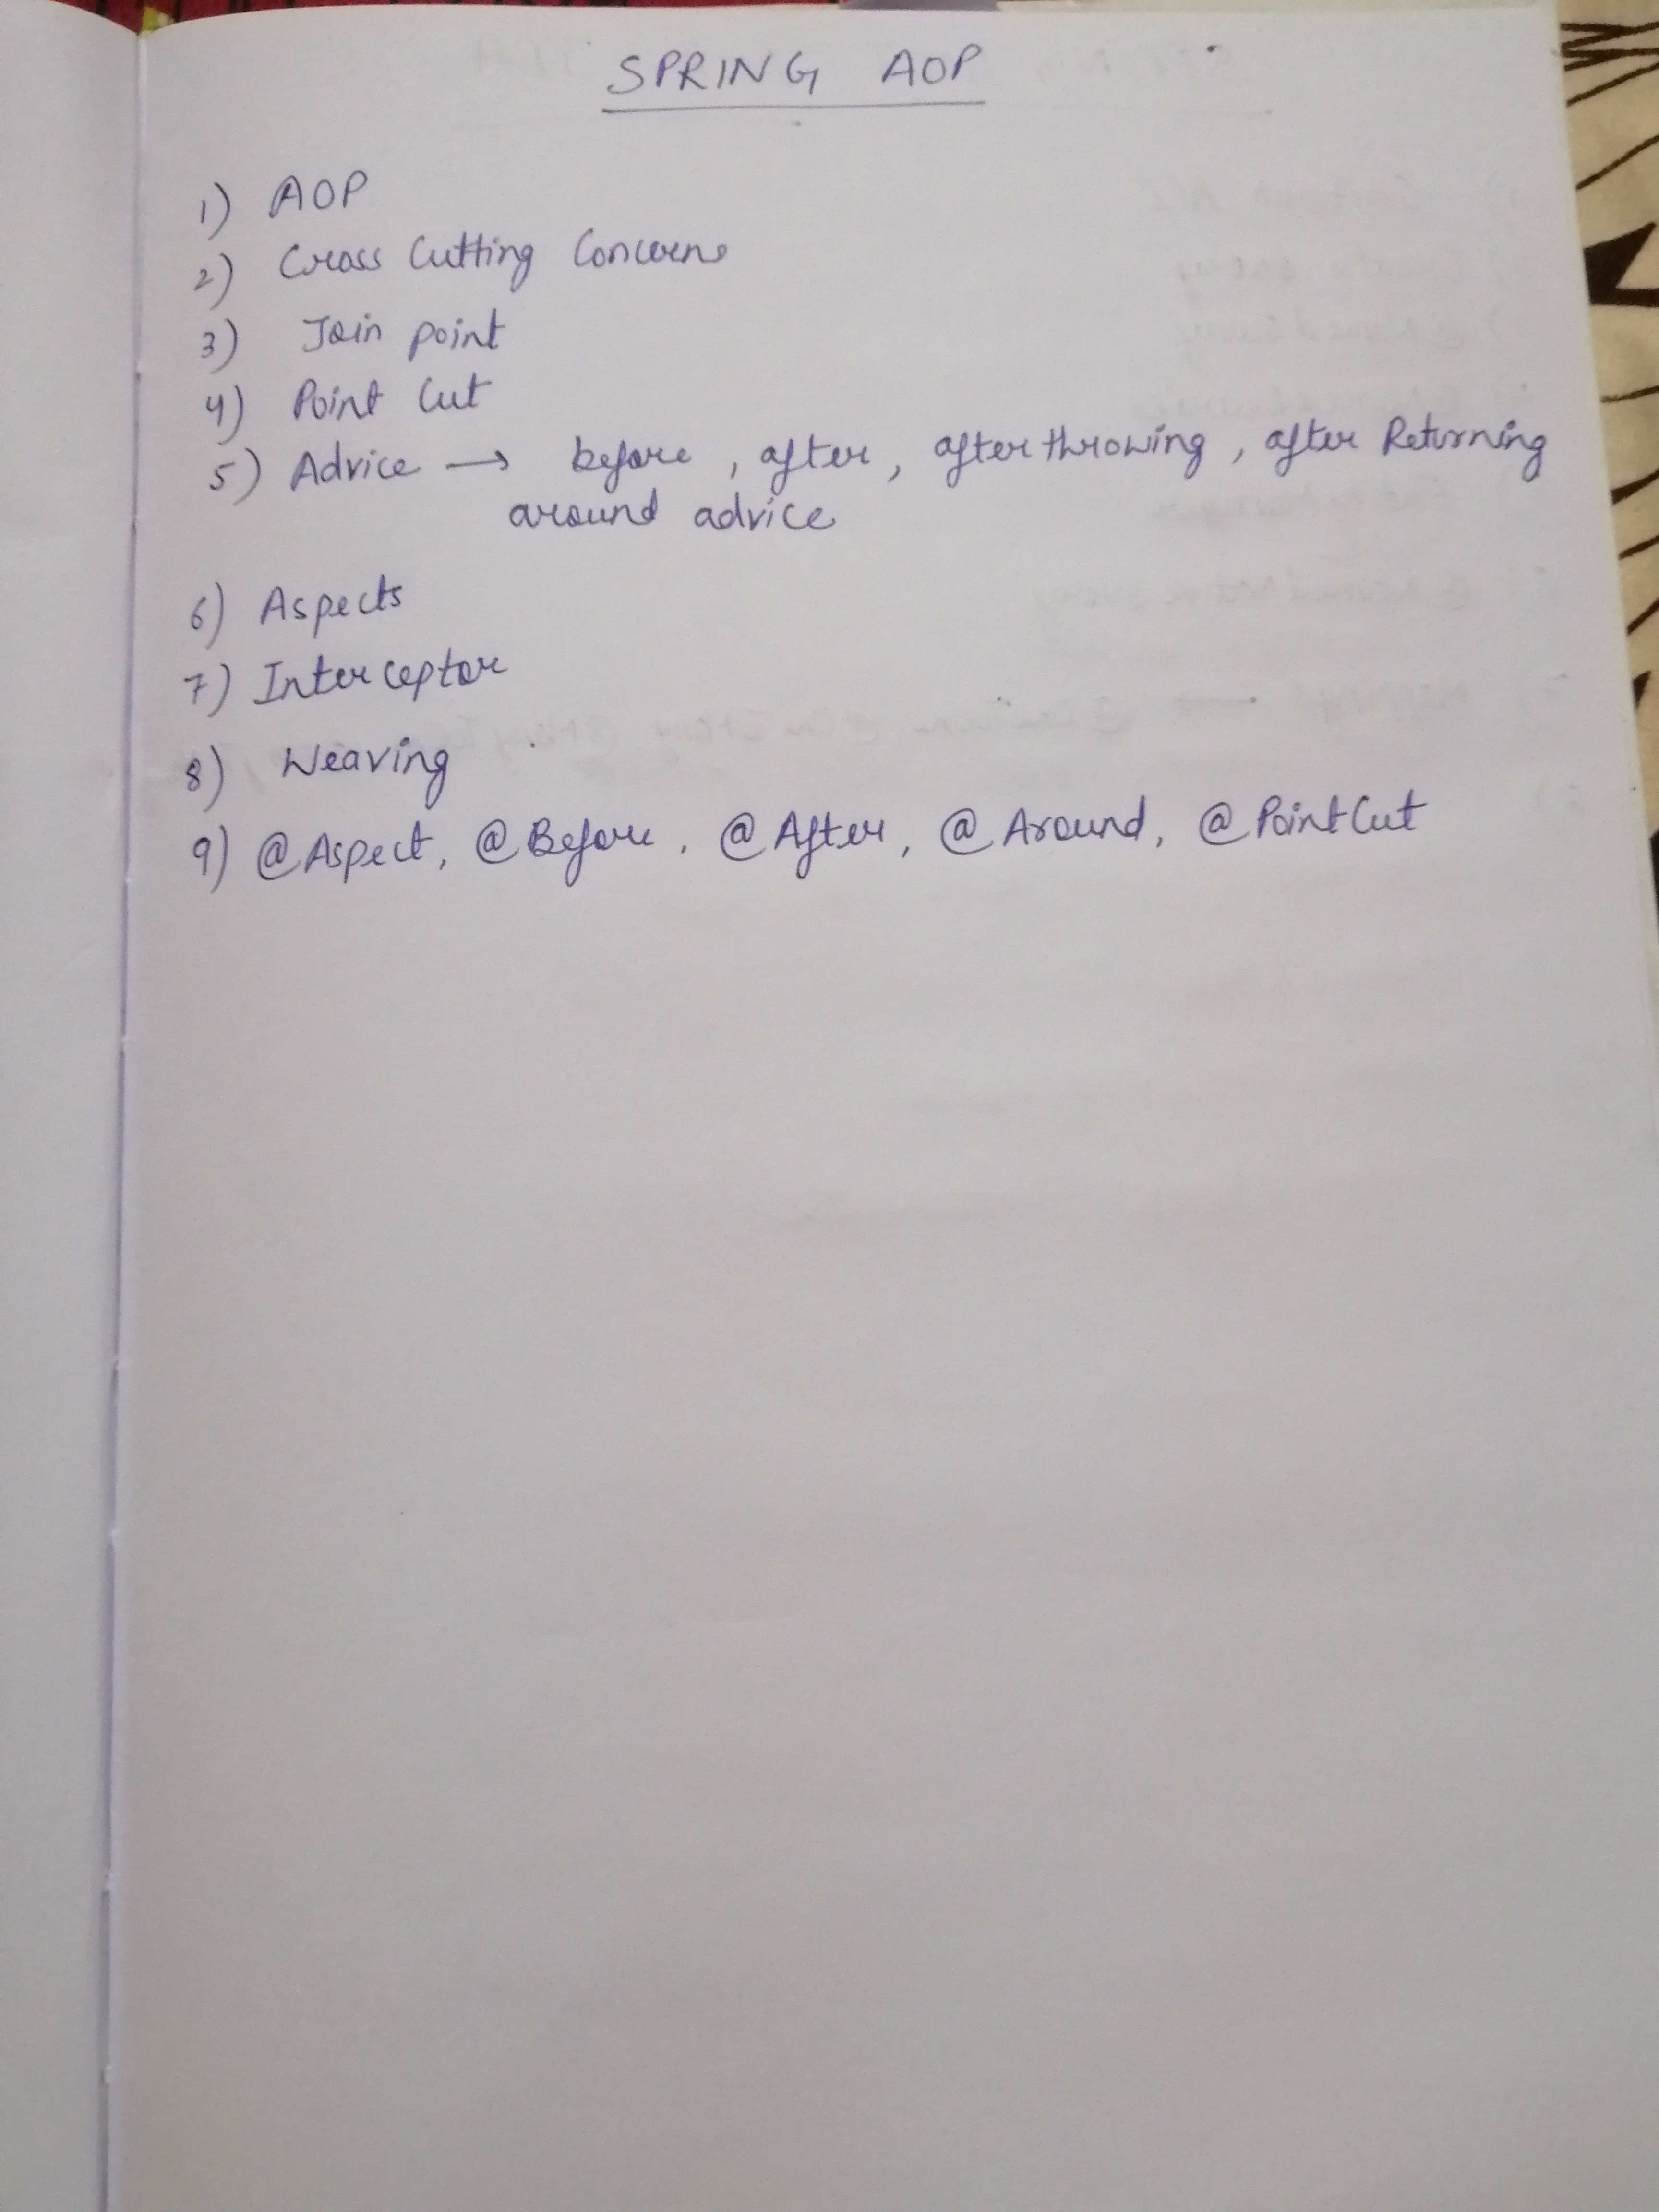 SPRING AOP
1) AOP
2) Cross Cutting Concerns
3) Join point
4) Point Cut
5) Advice → before, after, after throwing, after Returning
around advice
6) Aspects
7) Interceptor
8) Weaving
9) @Aspect, @Before, @After, @Around, @PointCut